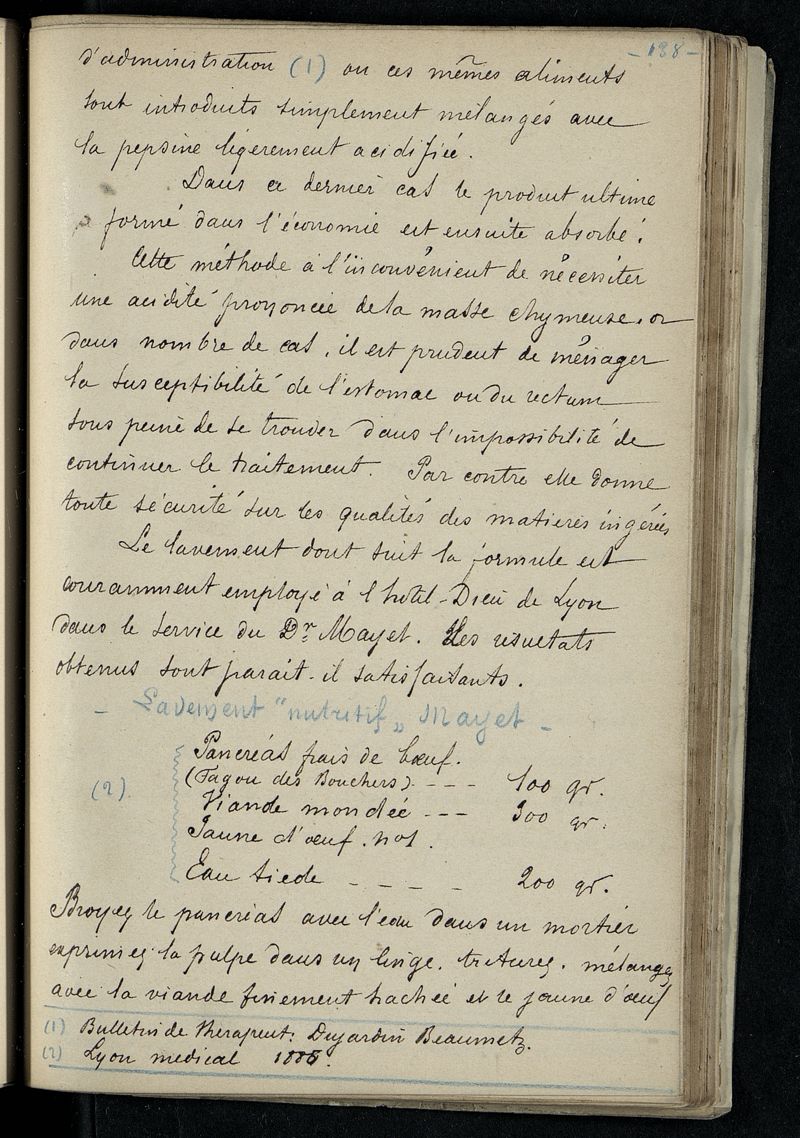 - 138 -
d'administration (1) ou ces mêmes aliments
sont introduits simplement mélangés avec
la pepsine légerement acidifiée.
Dans ce dernier cas le produit ultime
formé dans l'économie est ensuite absorbé.
Cette méthode à l'inconvénient de nécessiter
une acidité prononcée de la masse chymeuse, or
dans nombre de cas, il est prudent de ménager
la susceptibilité de l'estomac ou du rectum
sous peine de se trouver dans l'impossibilité de
continuer le traitement. Par contre elle donne
toute sécurité sur les qualités des matieres ingérées
Le lavement dont suit la formule est
couramment employé à l'hotel-Dieu de Lyon
dans le service du Dr Mayet. Les résultats
obtenus sont parait-il satisfaisants.
- Lavement "nutritif" Mayet -
Pancréas frais de bœuf.
(Fagou des Bouchers). - - - 100 gr.
(2) Viande mondée - - - 300 gr.
Jaune d'œuf. no 1.
Eau tiede - - - - - 200 gr.
Broyez le pancréas avec l'eau dans un mortier
exprimez la pulpe dans un linge. triturez. mélangez
avec la viande finement hachée et le jaune d'œuf
(1) Bulletin de thérapeut: Dujardin Beaumetz.
(2) Lyon medical